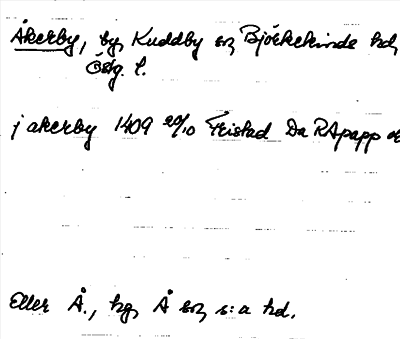 Åkerby, by, Kuddby sn, Björkekinds hd,
Östg. l.
j akerby 1409 20/10 Fristad Da RApapp
Eller Å., hg, Å sn, s:a hd.